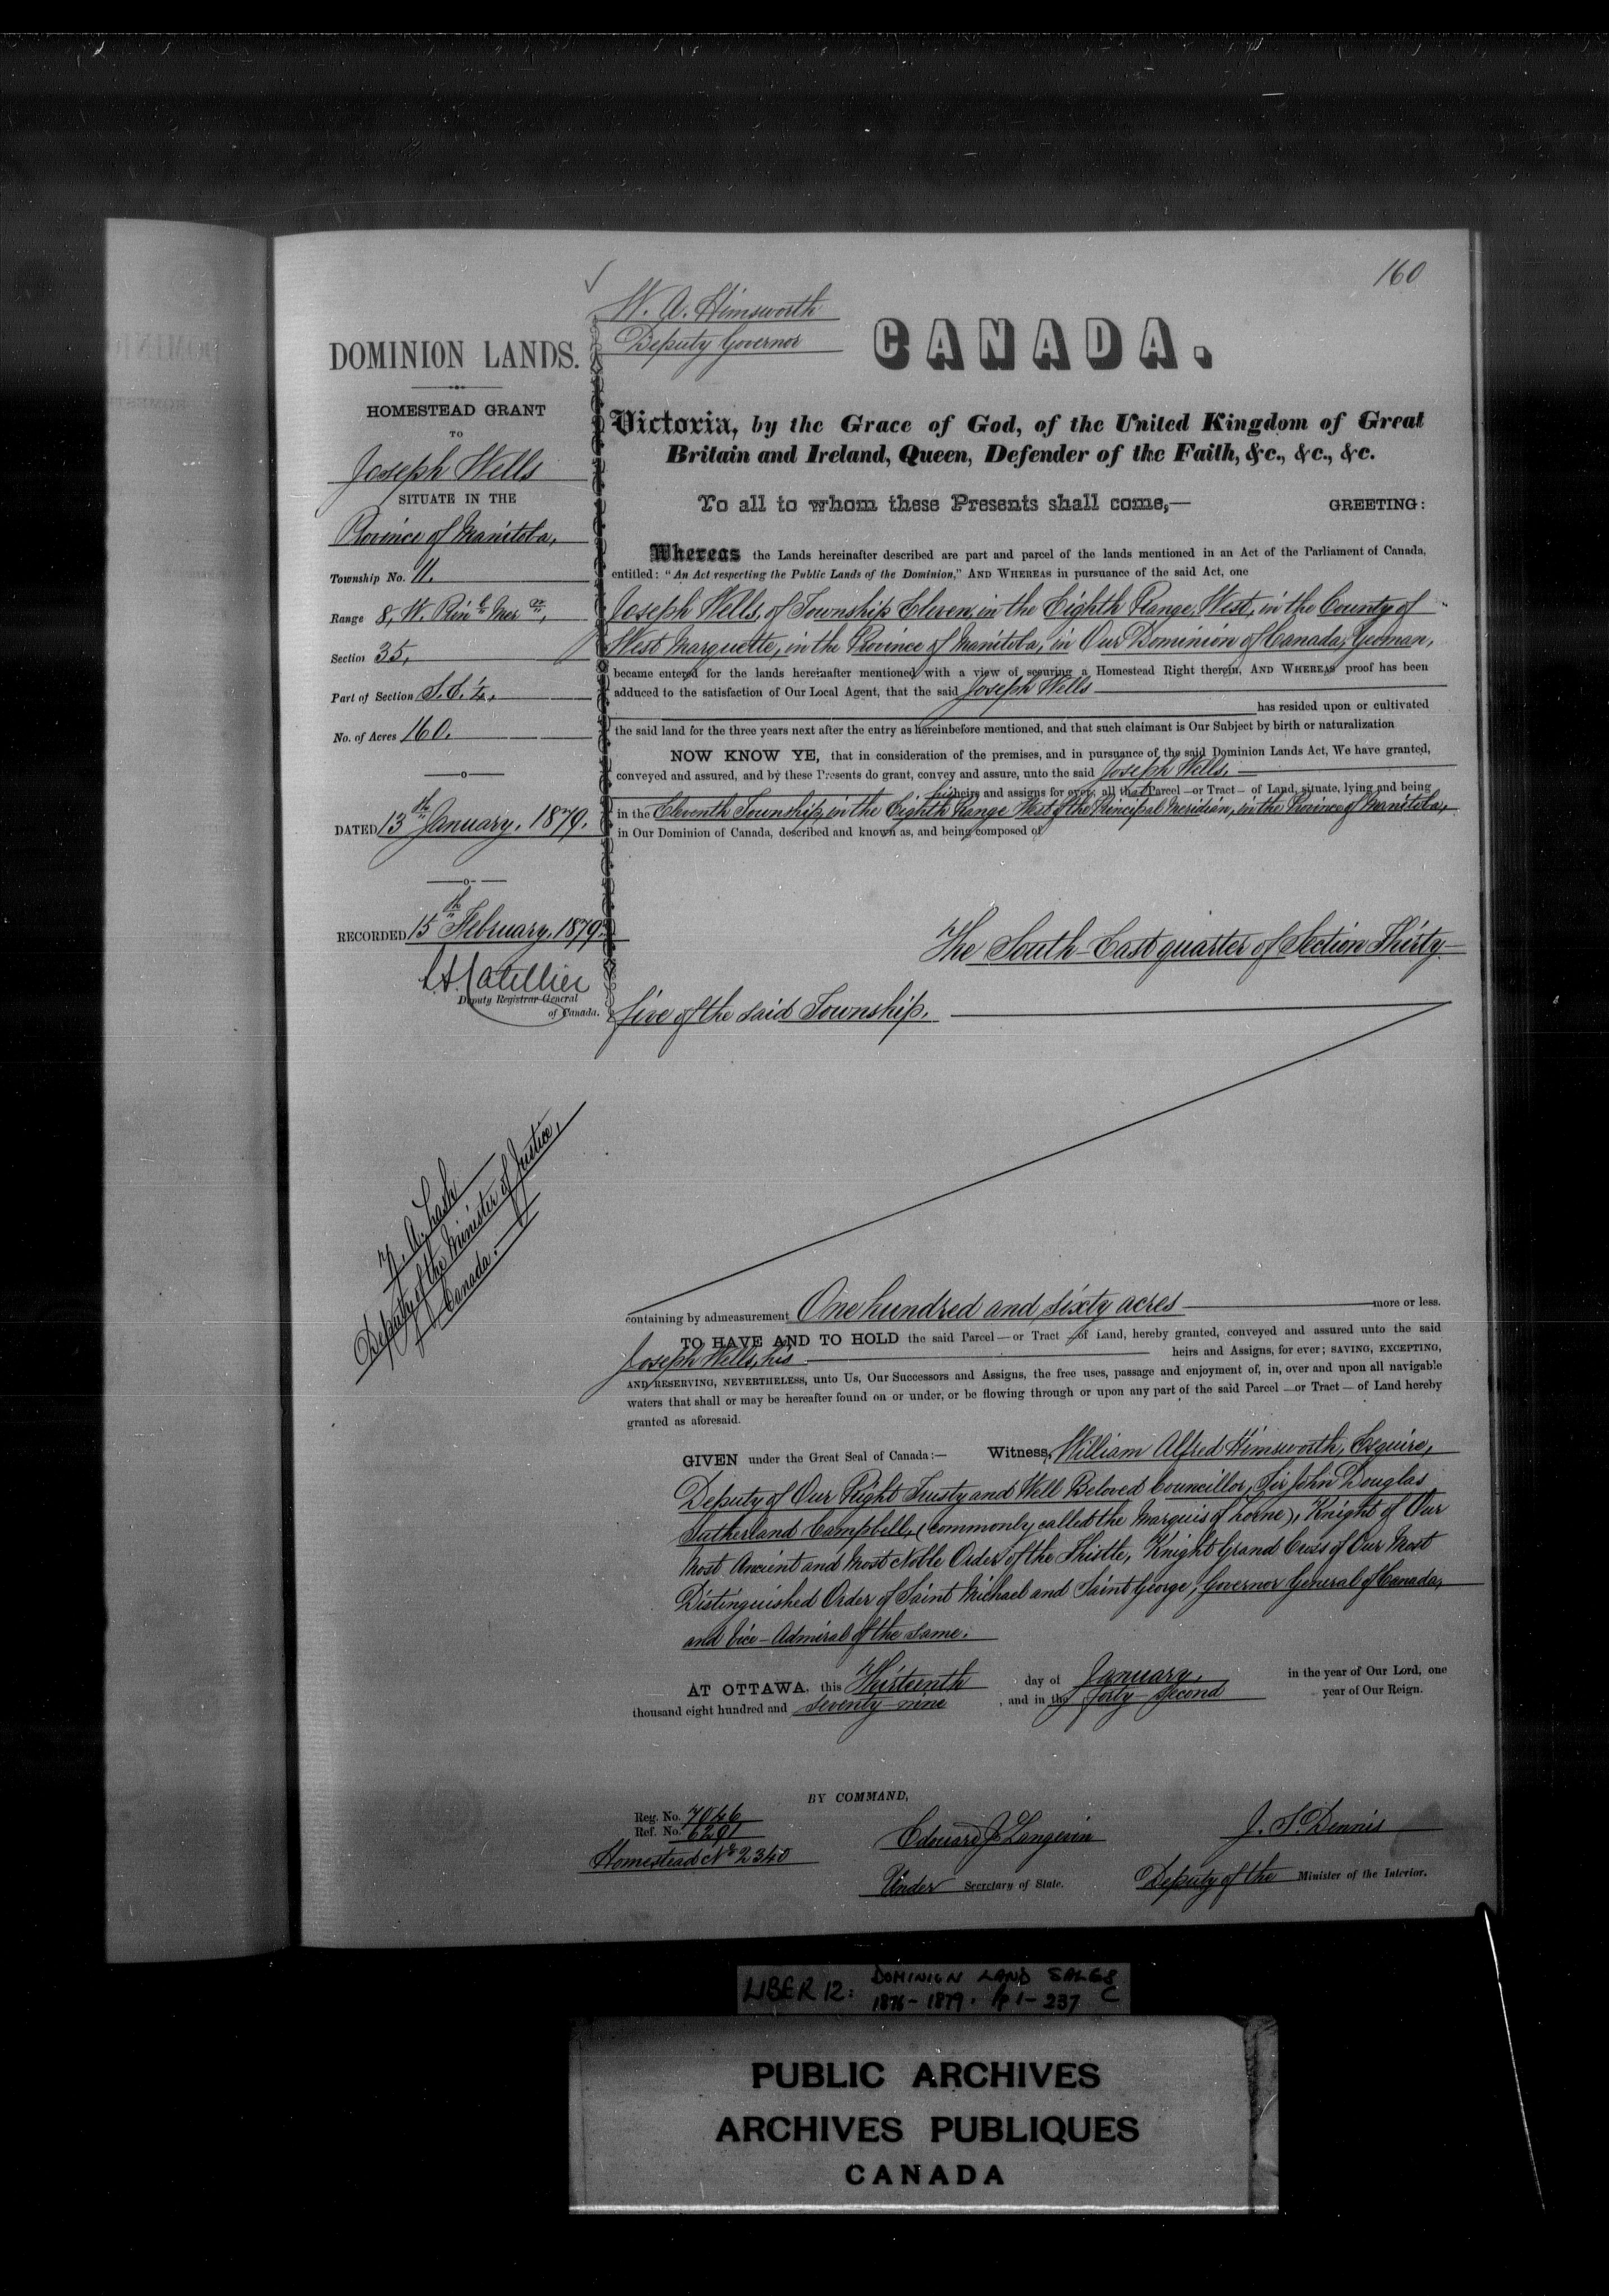 160
W. A. Himsworth
Deputy Governor
CANADA.
DOMINION LANDS.
HOMESTEAD GRANT
TO
Joseph Wells
SITUATE IN THE
Province of Manitoba,
Township No. 11.
Range 8, W. Prin l Mer an,
Section 35,
Part of Section S.E. ¼,
No. of Acres 160.
DATED 13th January, 1879.
RECORDED 15th February, 1879.
Deputy Registrar General
of Canada.
Z. A. Lash
Deputy of the Minister of Justice,
Canada.
Victoria, by the Grace of God, of the United Kingdom of Great
Britain and Ireland, Queen, Defender of the Faith, &c., &c., &c.
To all to whom these Presents shall come,— GREETING:
Whereas the Lands hereinafter described are part and parcel of the lands mentioned in an Act of the Parliament of Canada,
entitled: "An Act respecting the Public Lands of the Dominion," AND WHEREAS in pursuance of the said Act, one
Joseph Wells, of Township Eleven, in the Eighth Range, West, in the County of
West Marquette, in the Province of Manitoba, in Our Dominion of Canada, Yeoman,
became entered for the lands hereinafter mentioned with a view of securing a Homestead Right therein, AND WHEREAS proof has been
adduced to the satisfaction of Our Local Agent, that the said Joseph Wells
has resided upon or cultivated
the said land for the three years next after the entry as hereinbefore mentioned, and that such claimant is Our Subject by birth or naturalization
NOW KNOW YE, that in consideration of the premises, and in pursuance of the said Dominion Lands Act, We have granted,
conveyed and assured, and by these Presents do grant, convey and assure, unto the said Joseph Wells,
his heirs and assigns for ever, all that Parcel—or Tract— of Land, situate, lying and being
in the Eleventh Township, in the Eighth Range West of the Principal Meridian, in the Province of Manitoba,
in Our Dominion of Canada, described and known as, and being composed of
The South-East quarter of Section Thirty-
five of the said Township.
containing by admeasurement One hundred and sixty acres more or less.
TO HAVE AND TO HOLD the said Parcel—or Tract—of Land, hereby granted, conveyed and assured unto the said
Joseph Wells, his heirs and Assigns, for ever; SAVING, EXCEPTING,
AND RESERVING, NEVERTHELESS, unto Us, Our Successors and Assigns, the free uses, passage and enjoyment of, in, over and upon all navigable
waters that shall or may be hereafter found on or under, or be flowing through or upon any part of the said Parcel—or Tract—of Land hereby
granted as aforesaid.
GIVEN under the Great Seal of Canada:— Witness, William Alfred Himsworth, Esquire,
Deputy of Our Right Trusty and Well Beloved Councillor, Sir John Douglas
Sutherland Campbell, (commonly called the Marquis of Lorne), Knight of Our
Most Ancient and Most Noble Order of the Thistle, Knight Grand Cross of Our Most
Distinguished Order of Saint Michael and Saint George, Governor General of Canada,
and Vice-Admiral of the same.
AT OTTAWA, this Thirteenth day of January, in the year of Our Lord, one
thousand eight hundred and seventy-nine, and in the forty-second year of Our Reign.
BY COMMAND,
Reg. No. 7046
Ref. No. 6291
Homestead No 2340
Edouard J. Langevin
Under Secretary of State.
J. S. Dennis
Deputy of the Minister of the Interior.
LIBER 12: DOMINION LAND SALES
1876-1879. pp 1-237 C
PUBLIC ARCHIVES
ARCHIVES PUBLIQUES
CANADA